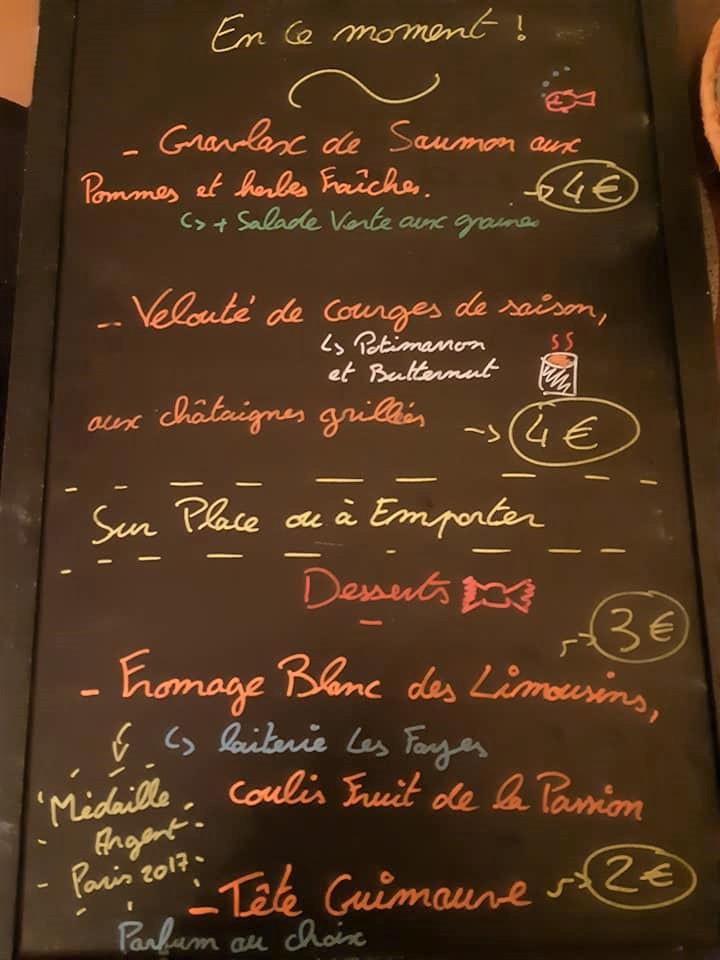 En ce moment !
- Gravlax de Saumon aux
Pommes et herbes Fraîches. → 4€
↳ + Salade Verte aux graines
- Velouté de courges de saison,
↳ Potimarron
et Butternut
aux châtaignes grillées → 4€
Sur Place ou à Emporter
Desserts
→ 3€
- Fromage Blanc des Limousins,
↳ laiterie Les Fayes
Médaille
Argent
Paris 2017
coulis Fruit de la Passion
- Tête Guimauve → 2€
Parfum au choix